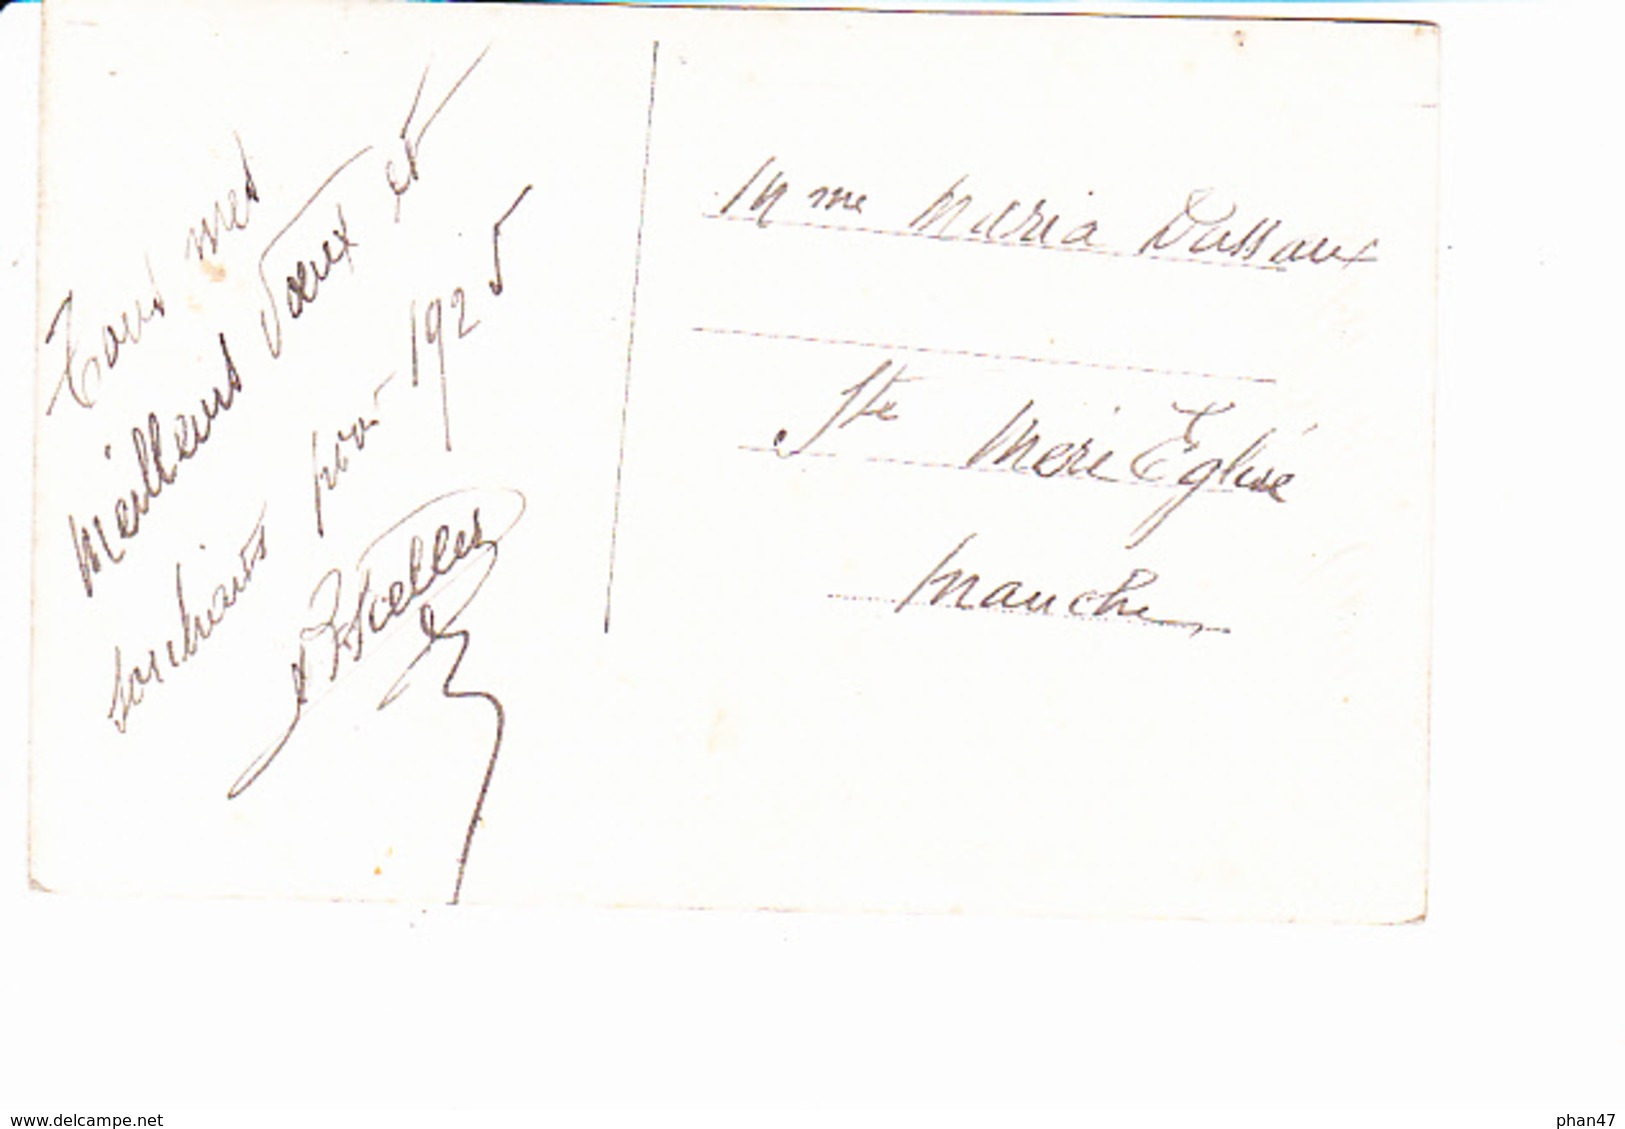 Tous mes
meilleurs vœux et
souhaits pour 1925
Mme Maria Dussaux
Ste Mère Eglise
Manche
www.delcampe.net
phan47